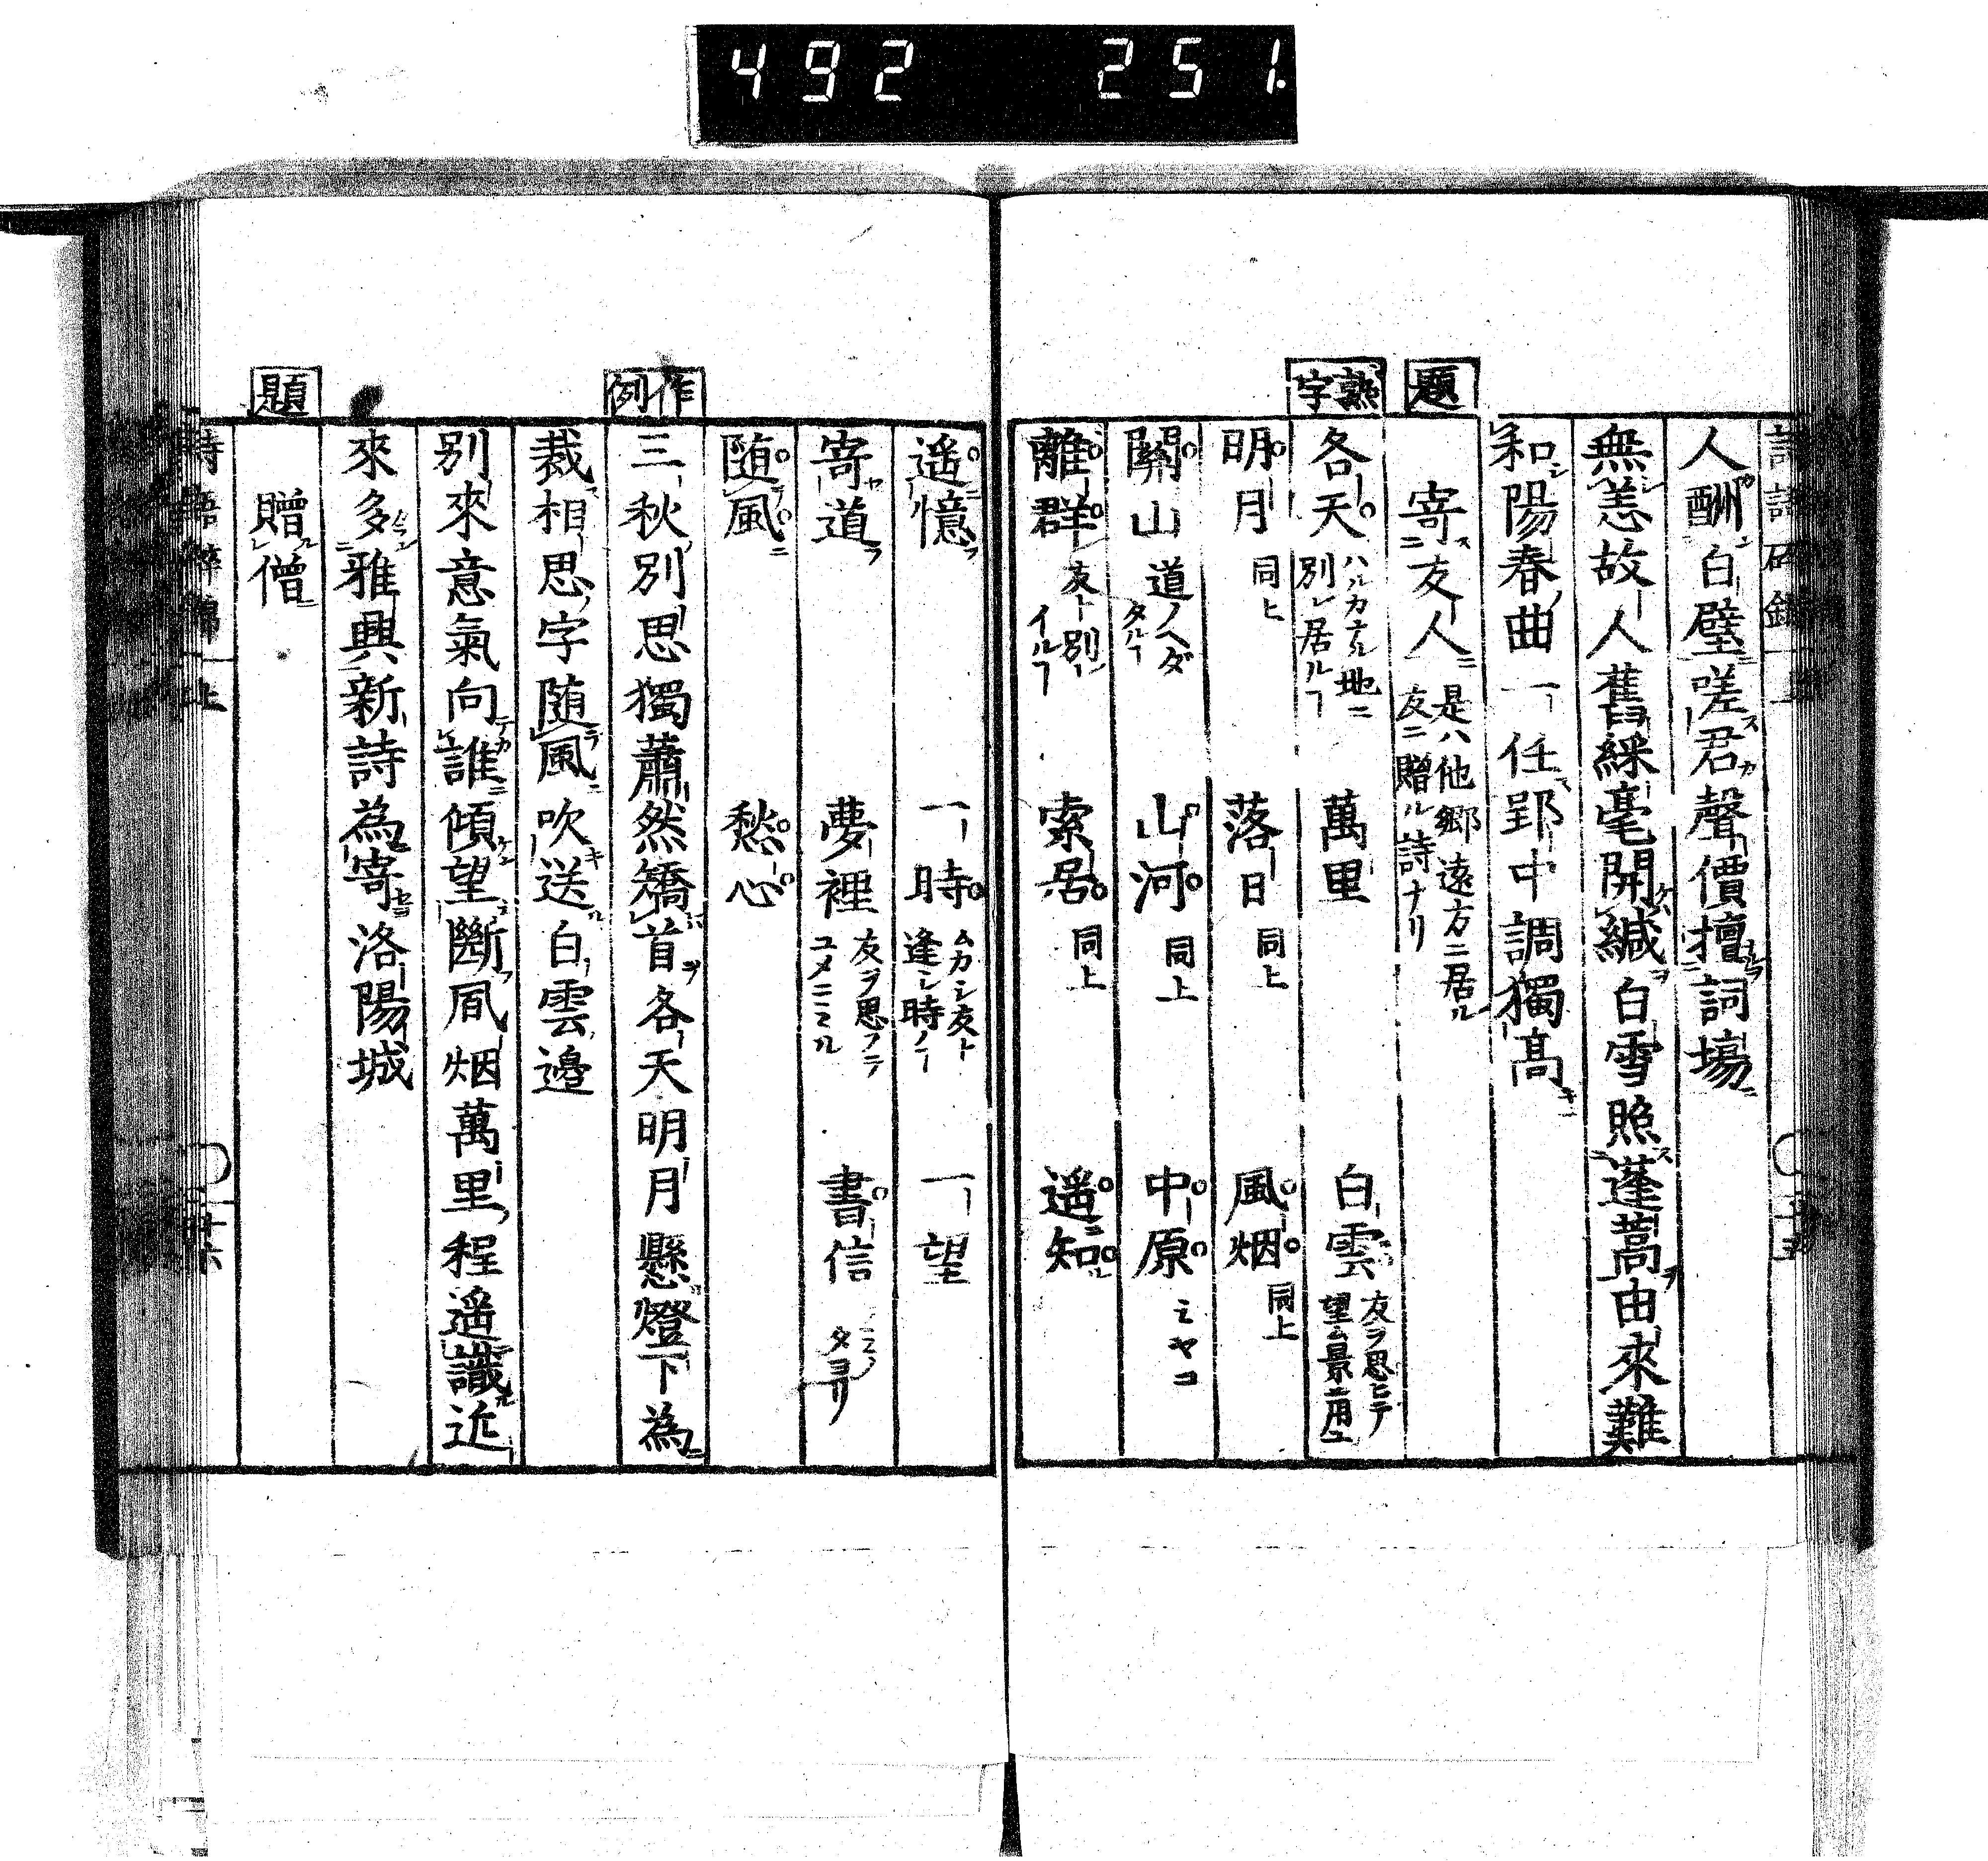 492 251.
人酬白璧嗟君聲價擅詞場
無恙故人舊綵毫開緘白雪照蓬蒿由來難
和陽春曲一任郢中調獨髙
題
寄友人 是ハ他郷遠方ニ居ル
友ニ贈ル詩ナリ
熟字
各天 ハルカナル地ニ
別レ居ルヿ
萬里
白雲 友ヲ思ヒテ
望ム景ニ用ユ
明月 同ヒ
落日 同上
風烟 同上
關山 道ノヘダ
タルヿ
山河 同上
中原 ミヤコ
離群 友ト別レ
イルヿ
索居 同上
遥知
遥憶
一時 ムカシ友ト
逢シ時ノヿ
一望
寄道
夢裡 友ヲ思フテ
ユメニミル
書信 フミノ
タヨリ
随風
愁心
作例
三秋別思獨蕭然矯首各天明月懸燈下為
裁相思字随風吹送白雲邊
別來意氣向誰傾望斷風烟萬里程遥識近
來多雅興新詩為寄洛陽城
題
贈僧